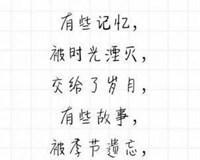 有些记忆，
被时光湮灭，
交给了岁月，
有些故事，
被季节遗忘，